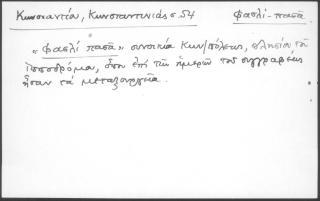 Κωνσταντίου, Κωνσταντινιάς σ. 54 Φασλί-πασᾶ
«Φασλί πασᾶ» συνοικία Κων/πόλεως, πλησίον τοῦ
ἱπποδρόμου, ὅπου ἐπί τῶν ἡμερῶν τοῦ συγγραφέως
ἦσαν τά μεταλουργεῖα.